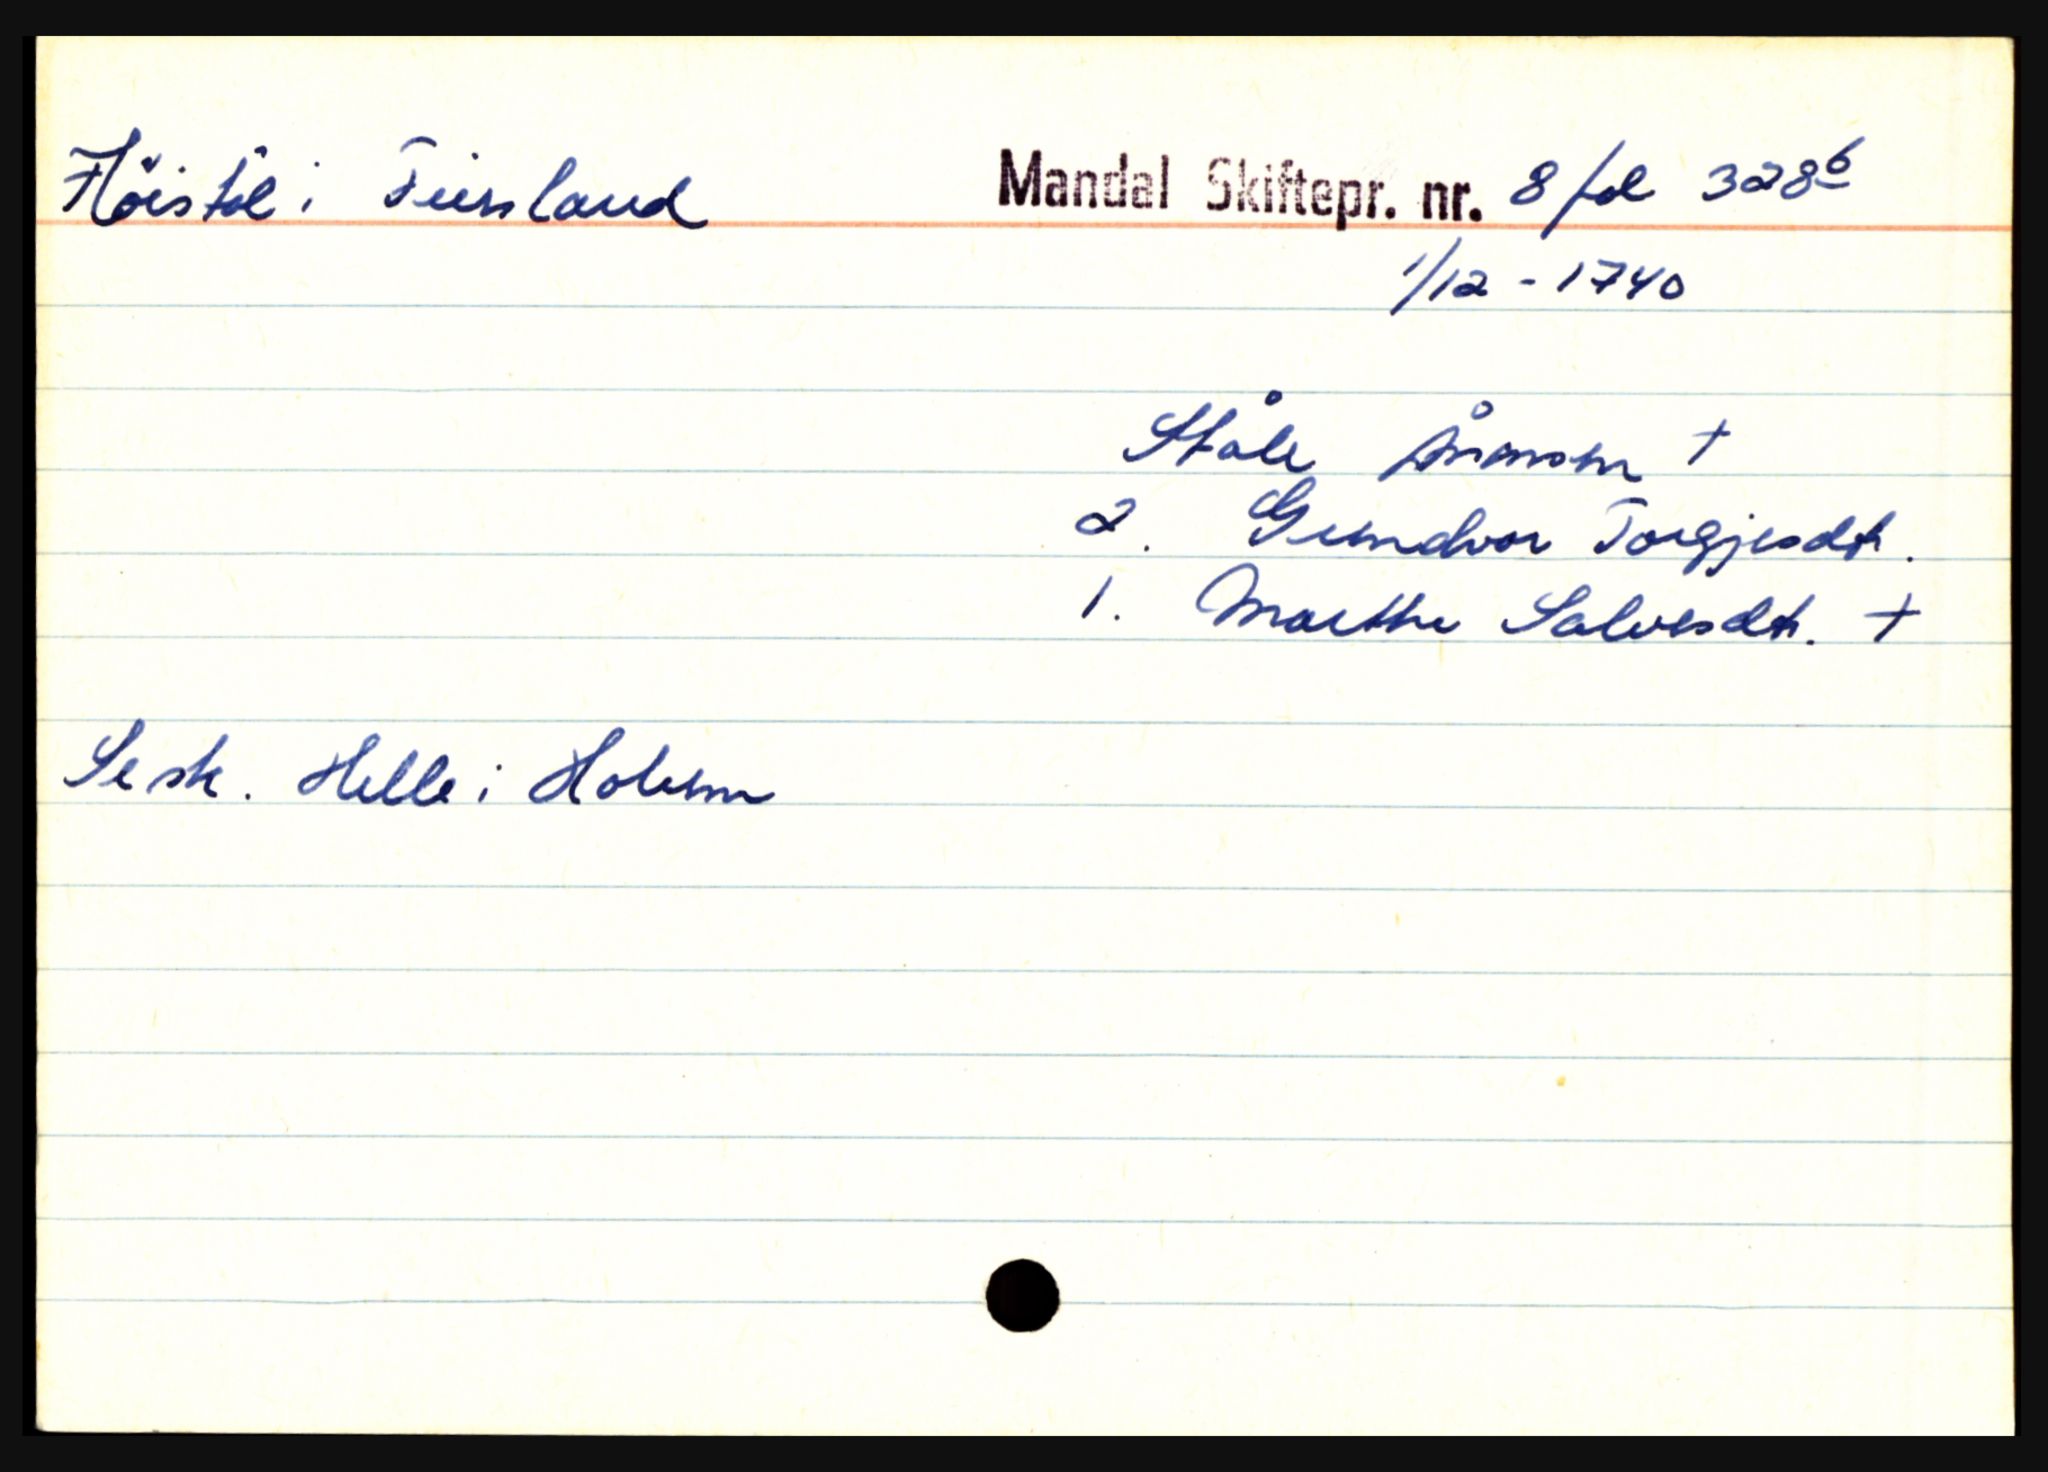 Höistöl i Finsland Mandal Skiftepr. nr. 8 fol 328b
1/12 - 1740
Ståle Ånonsen +
2. Gundvor Torgjesdtr.
1. Marthe Salvesdtr. +
Se sk. Helle i Holum